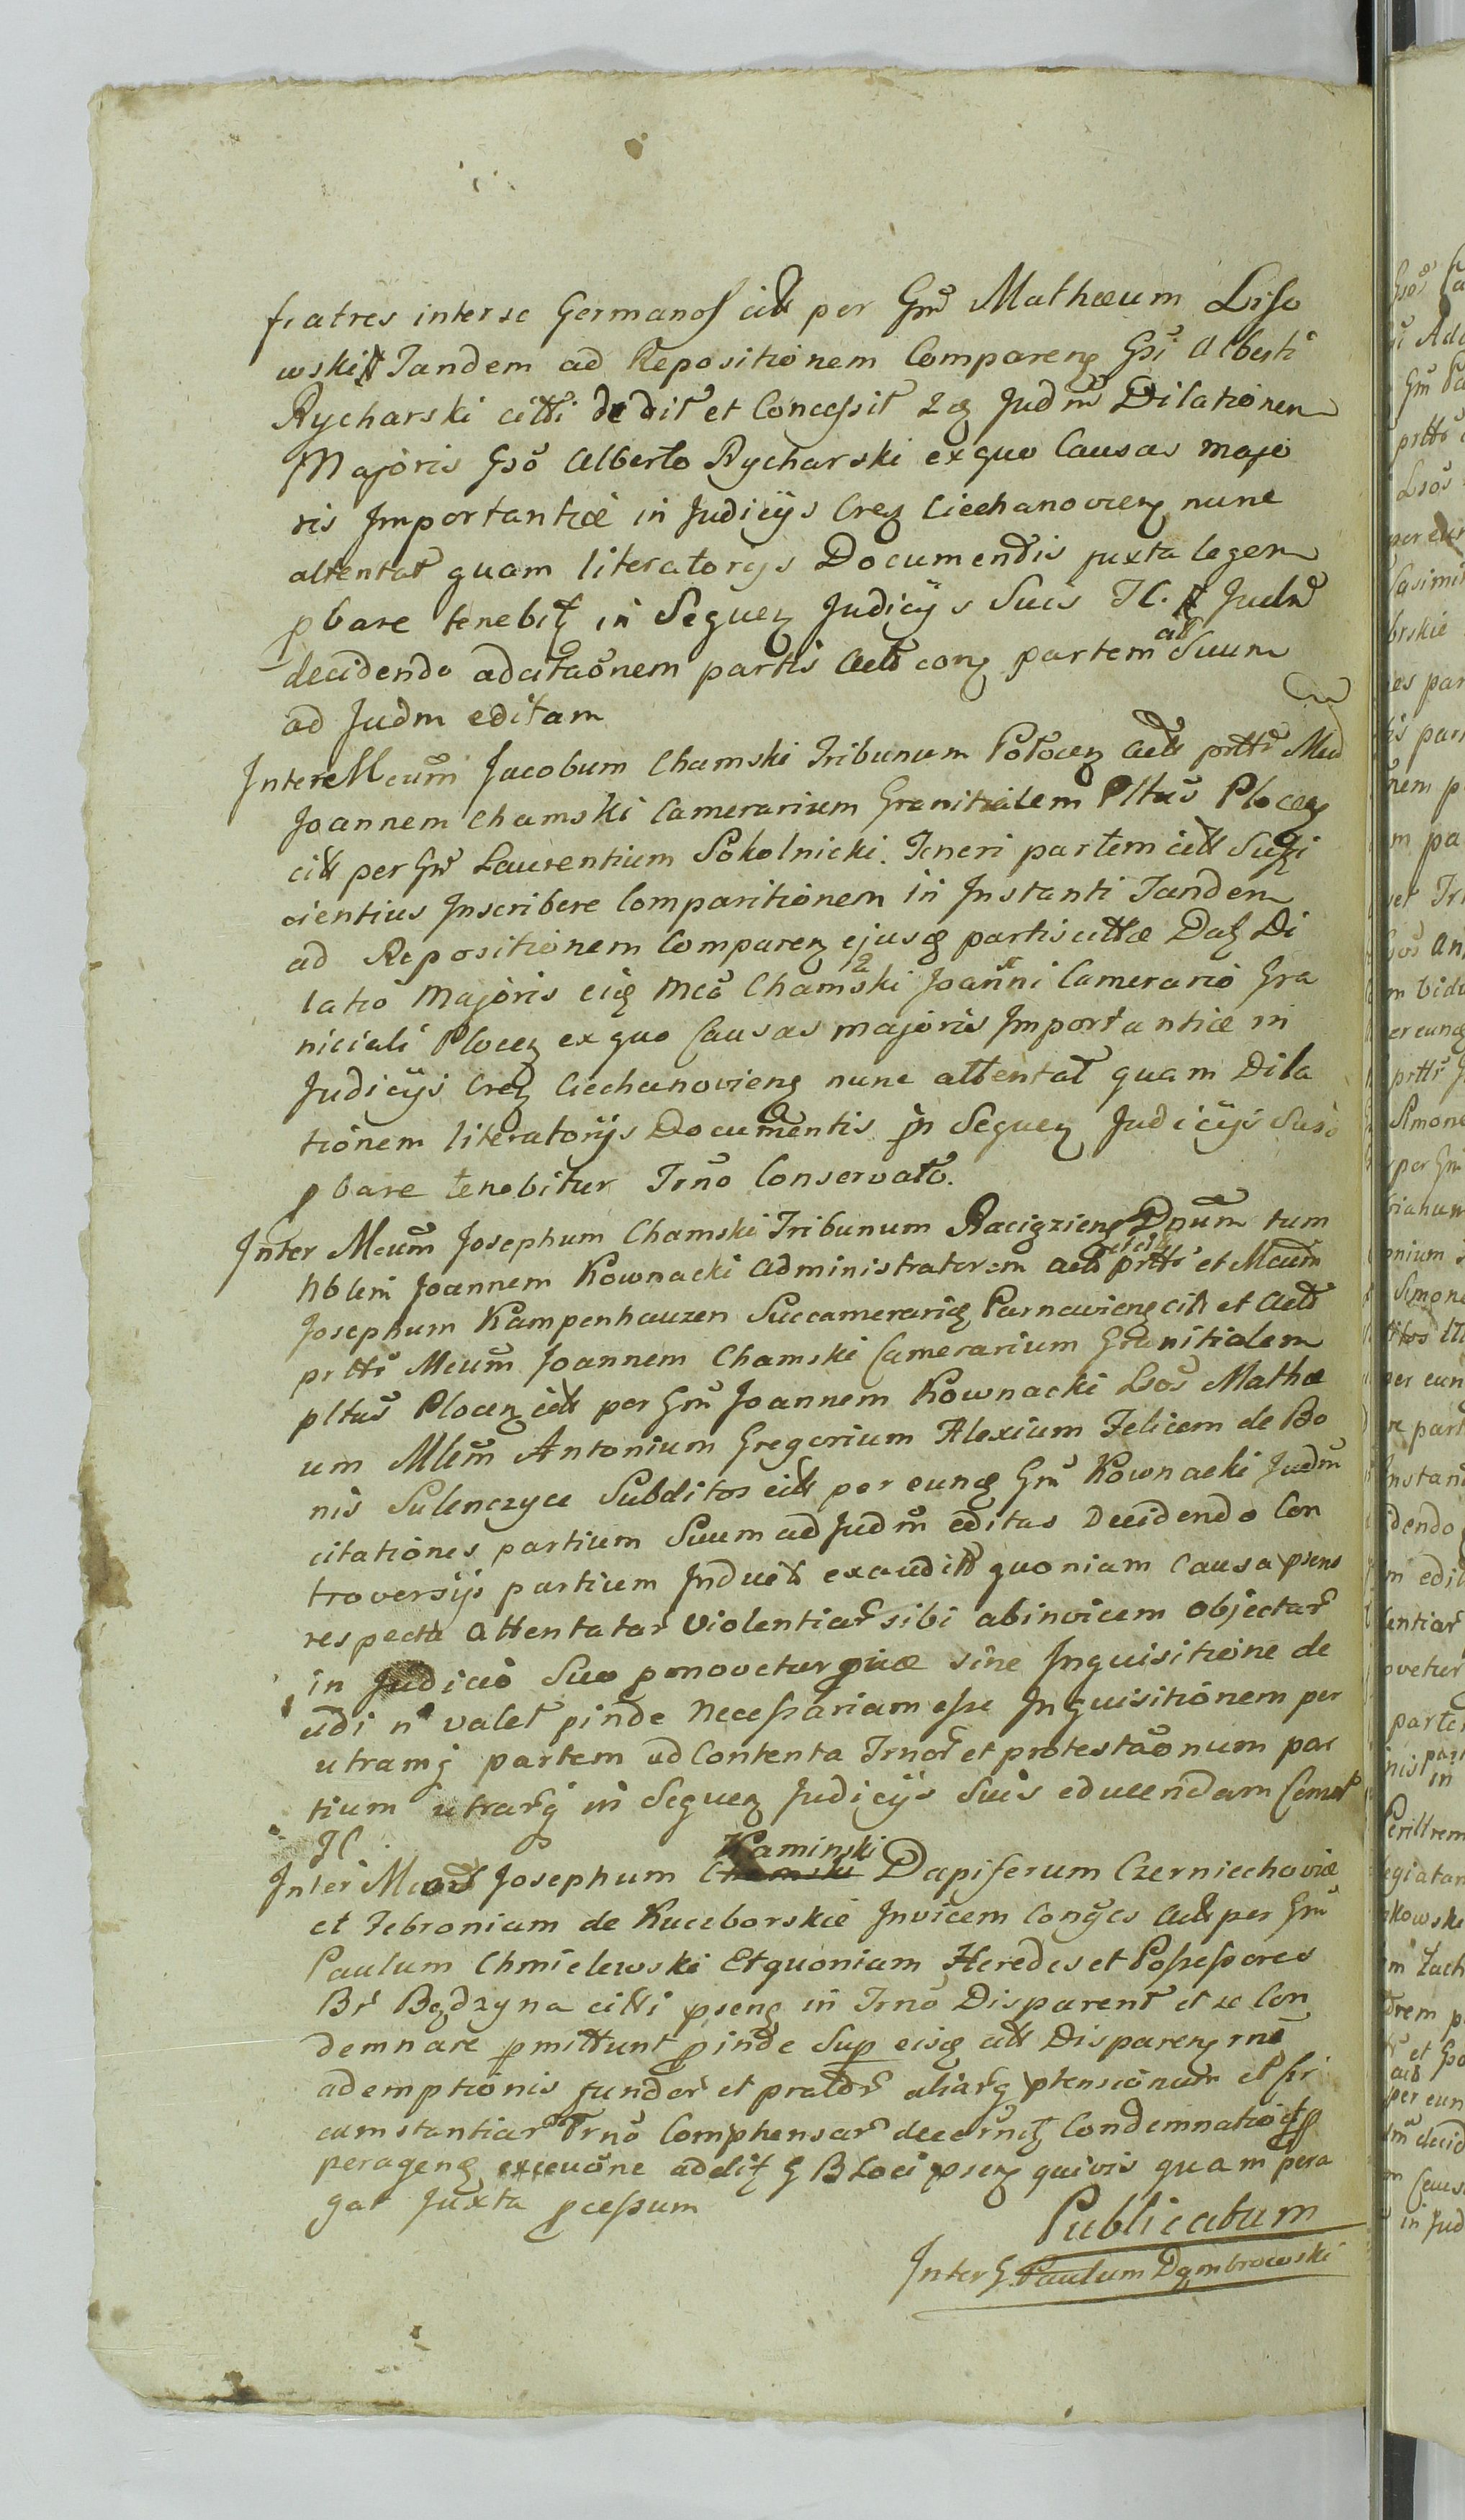 fratres inter se Germanos citt per Gm̃ Mathæum Liso
wski Tandem ad Repositionem Comparenz Gsi Alberti
Rycharski citti dedit et Concessit Judm̃ Dilationem
Majoris Gso Alberto Rycharski ex quo Causas majo
ris Importantiæ in Judicijs Crez Ciechanovienz nunc
attentat quam literatorijs Documentis juxta legem
pbare tenebit in Sequenz Judicijs Suis TC. Judm̃
decidendo ad citaõnem partis act conz partem citt Suum
ad Judm editam
Inter Mcum̃ Jacobum Chamski Tribunum Plocen act prtti Mcu
Joannem Chamski Camerarium Granitialem Pltus Plocenz
citt per Gm̃ Laurentium Sokolnicki. Teneri partem citt Suffi
cientius Inscribere Comparitionem in Instanti Tandem
ad Repositionem Comparenz ejusq partis cittæ Dat Di
latio Majoris eiq Mco Chamski Joanni Camerario Gra
niciali Plocenz ex quo Causas majoris Importantiæ in
Judicijs Crez Ciechanovienz nunc attentat quam Dila
tionem literatorijs Documentis in Sequenz Judicijs Suis
pbare tenebitur Trno Conservato.
Inter Mcum̃ Josephum Chamski Tribunum Raciązienz Dnum tum
Nblem Joannem Kownacki Administratorem act et citt prtti et Mcum
Josephum Kampenhauzen Succamerariq Parnavienz citt et act
prtti Mcum Joannem Chamski Camerarium Granitialem
pltus Plocenz citt per Gm̃ Joannem Kownacki Lsos Mathæ
um Mlem̃ Antonium Gregorium Alexium Felicem de Bo
nis Sulenczyce Subditos citt per eunq Gm̃ Kownacki Judm̃
citationes partium Suum ad Judm̃ editas Decidendo Con
troversijs partium Induct exaudit quoniam Causa psens
respectu attentatar Violentiar sibi ab invicem objectar
in Judicio Suo pmovetur quæ sine Inquisitione de
cidi n valet pinde Necessariam esse Inquisitionem per
utramq partem ad Contenta Trnor et protestaõnum par
tium utrarq in Sequenz Judicijs Suis educendam Censet
TC.
Inter Mcos Josephum Chamski Kaminski Dapiferum Czerniechoviæ
et Febroniam de Kuceborskie Invicem Conges Act per Gm̃
Paulum Chmielewski Et quoniam Heredes et Possessores
Br Będzyna citti psenz in Trno Disparent et se Con
demnare pmittunt pinde Sup eisq citt Disparenz rne
ademptionis fundor et prator aliarq ptensionum et Cir
cumstantiar Trno Comphensar decernit Condemnatio
peragenz execuõne addit G B Loci psenz quivis quam pera
gat Juxta pcessum
Publicatum
Inter G. Paulum Dąmbrowski